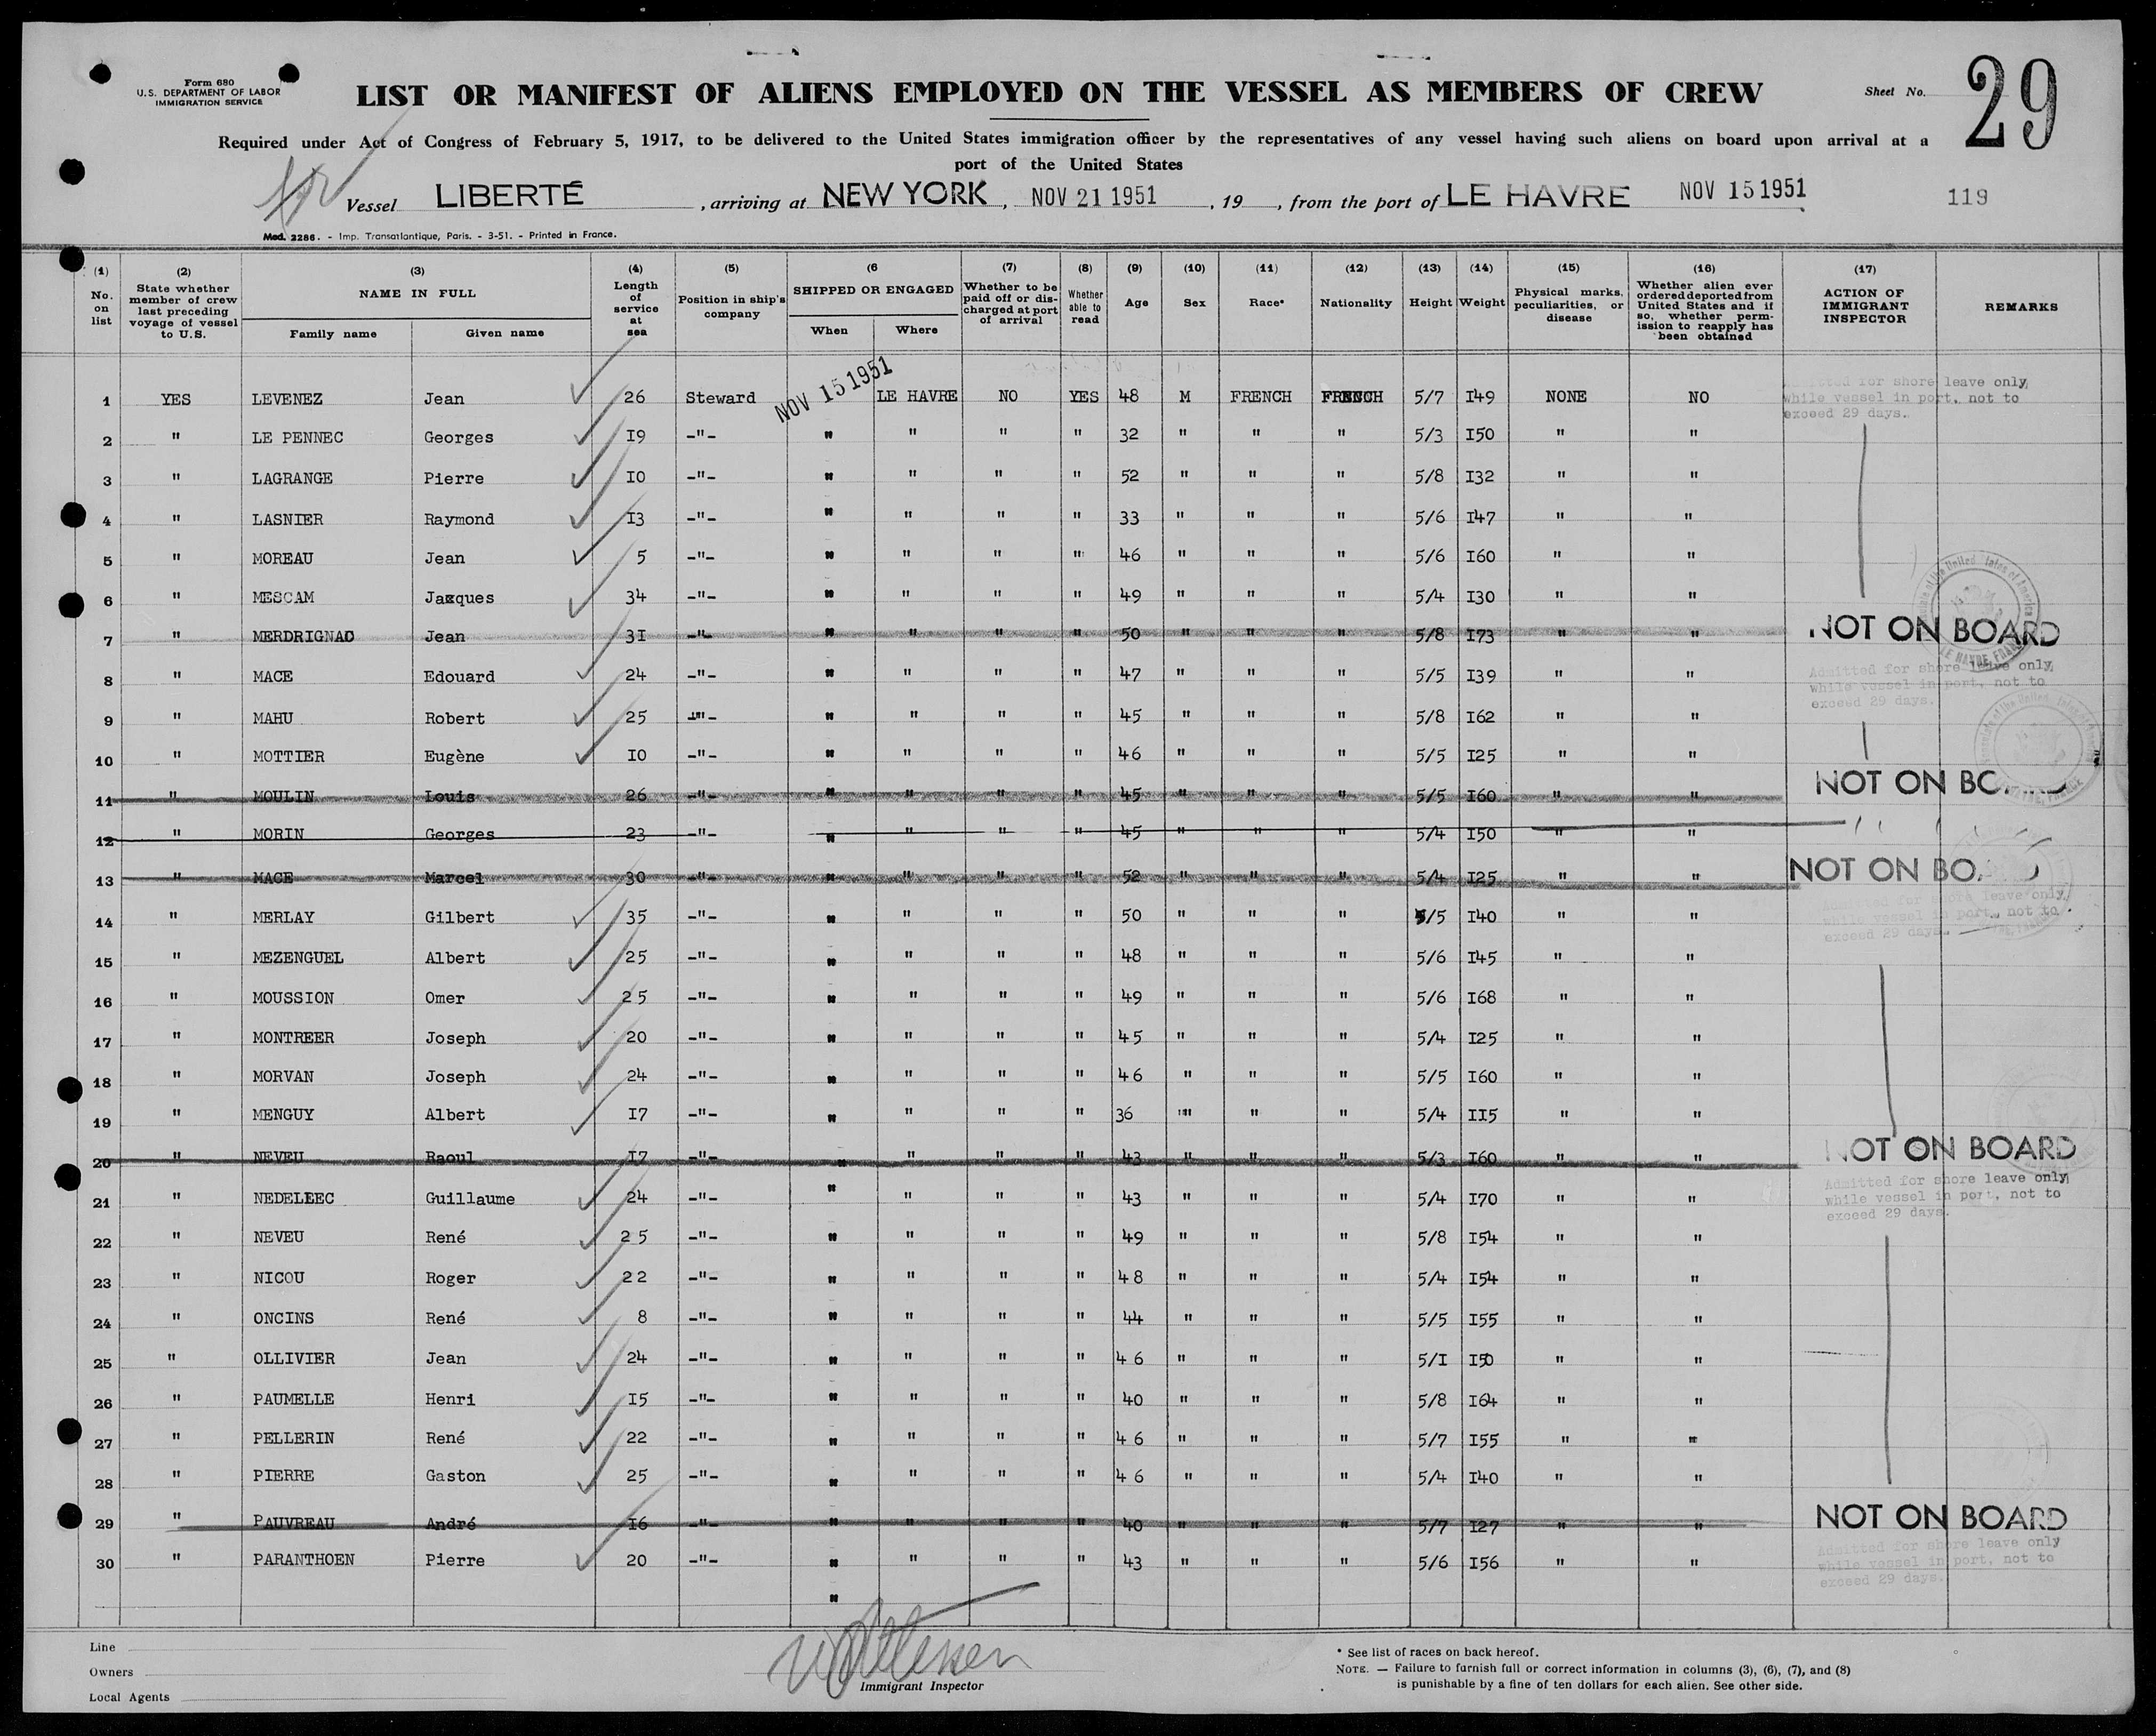 Form 680
U.S. DEPARTMENT OF LABOR
IMMIGRATION SERVICE
LIST OR MANIFEST OF ALIENS EMPLOYED ON THE VESSEL AS MEMBERS OF CREW
Sheet No. 29
Required under Act of Congress of February 5, 1917, to be delivered to the United States immigration officer by the representatives of any vessel having such aliens on board upon arrival at a
port of the United States
Vessel LIBERTÉ, arriving at NEW YORK, NOV 21 1951, 19, from the port of LE HAVRE NOV 15 1951 119
Mod. 2286. - Imp. Transatlantique, Paris. - 3-51. - Printed in France.
(1) (2) (3) (4) (5) (6 (7) (8) (9) (10) (11) (12) (13) (14) (15) (16) (17)
No. on list
State whether member of crew last preceding voyage of vessel to U.S.
NAME IN FULL
Family name
Given name
Length of service at sea
Position in ship's company
SHIPPED OR ENGAGED
When
Where
Whether to be paid off or discharged at port of arrival
Whether able to read
Age
Sex
Race*
Nationality
Height
Weight
Physical marks, peculiarities, or disease
Whether alien ever ordered deported from United States and if so, whether permission to reapply has been obtained
ACTION OF IMMIGRANT INSPECTOR
REMARKS
1 YES LEVENEZ Jean 26 Steward NOV 15 1951 LE HAVRE NO YES 48 M FRENCH FRENCH 5/7 I49 NONE NO
Admitted for shore leave only,
while vessel in port, not to
exceed 29 days.
2 " LE PENNEC Georges I9 -"- " " " " 32 " " " 5/3 I50 " "
3 " LAGRANGE Pierre I0 -"- " " " " 52 " " " 5/8 I32 " "
4 " LASNIER Raymond I3 -"- " " " " 33 " " " 5/6 I47 " "
5 " MOREAU Jean 5 -"- " " " " 46 " " " 5/6 I60 " "
6 " MESCAM Jacques 34 -"- " " " " 49 " " " 5/4 I30 " "
7 " MERDRIGNAC Jean 3I -"- " " " " 50 " " " 5/8 I73 " " NOT ON BOARD
8 " MACE Edouard 24 -"- " " " " 47 " " " 5/5 I39 " "
Admitted for shore leave only,
while vessel in port, not to
exceed 29 days.
9 " MAHU Robert 25 -"- " " " " 45 " " " 5/8 I62 " "
10 " MOTTIER Eugène I0 -"- " " " " 46 " " " 5/5 I25 " "
11 " MOULIN Louis 26 -"- " " " " 45 " " " 5/5 I60 " " NOT ON BOARD
12 " MORIN Georges 23 -"- " " " " 45 " " " 5/4 I50 " "
13 " MACE Marcel 30 -"- " " " " 52 " " " 5/4 I25 " " NOT ON BOARD
14 " MERLAY Gilbert 35 -"- " " " " 50 " " " 5/5 I40 " "
Admitted for shore leave only,
while vessel in port, not to
exceed 29 days.
15 " MEZENGUEL Albert 25 -"- " " " " 48 " " " 5/6 I45 " "
16 " MOUSSION Omer 25 -"- " " " " 49 " " " 5/6 I68 " "
17 " MONTREER Joseph 20 -"- " " " " 45 " " " 5/4 I25 " "
18 " MORVAN Joseph 24 -"- " " " " 46 " " " 5/5 I60 " "
19 " MENGUY Albert I7 -"- " " " " 36 " " " 5/4 II5 " "
20 " NEVEU Raoul I7 -"- " " " " 43 " " " 5/3 I60 " " NOT ON BOARD
21 " NEDELEEC Guillaume 24 -"- " " " " 43 " " " 5/4 I70 " "
Admitted for shore leave only,
while vessel in port, not to
exceed 29 days.
22 " NEVEU René 25 -"- " " " " 49 " " " 5/8 I54 " "
23 " NICOU Roger 22 -"- " " " " 48 " " " 5/4 I54 " "
24 " ONCINS René 8 -"- " " " " 44 " " " 5/5 I55 " "
25 " OLLIVIER Jean 24 -"- " " " " 46 " " " 5/I I50 " "
26 " PAUMELLE Henri I5 -"- " " " " 40 " " " 5/8 I64 " "
27 " PELLERIN René 22 -"- " " " " 46 " " " 5/7 I55 " "
28 " PIERRE Gaston 25 -"- " " " " 46 " " " 5/4 I40 " "
29 " PAUVREAU André I6 -"- " " " " 40 " " " 5/7 I27 " " NOT ON BOARD
30 " PARANTHOEN Pierre 20 -"- " " " " 43 " " " 5/6 I56 " "
Admitted for shore leave only
while vessel in port, not to
exceed 29 days.
"
Line
Owners
Local Agents
Immigrant Inspector
* See list of races on back hereof.
NOTE. — Failure to furnish full or correct information in columns (3), (6), (7), and (8)
is punishable by a fine of ten dollars for each alien. See other side.